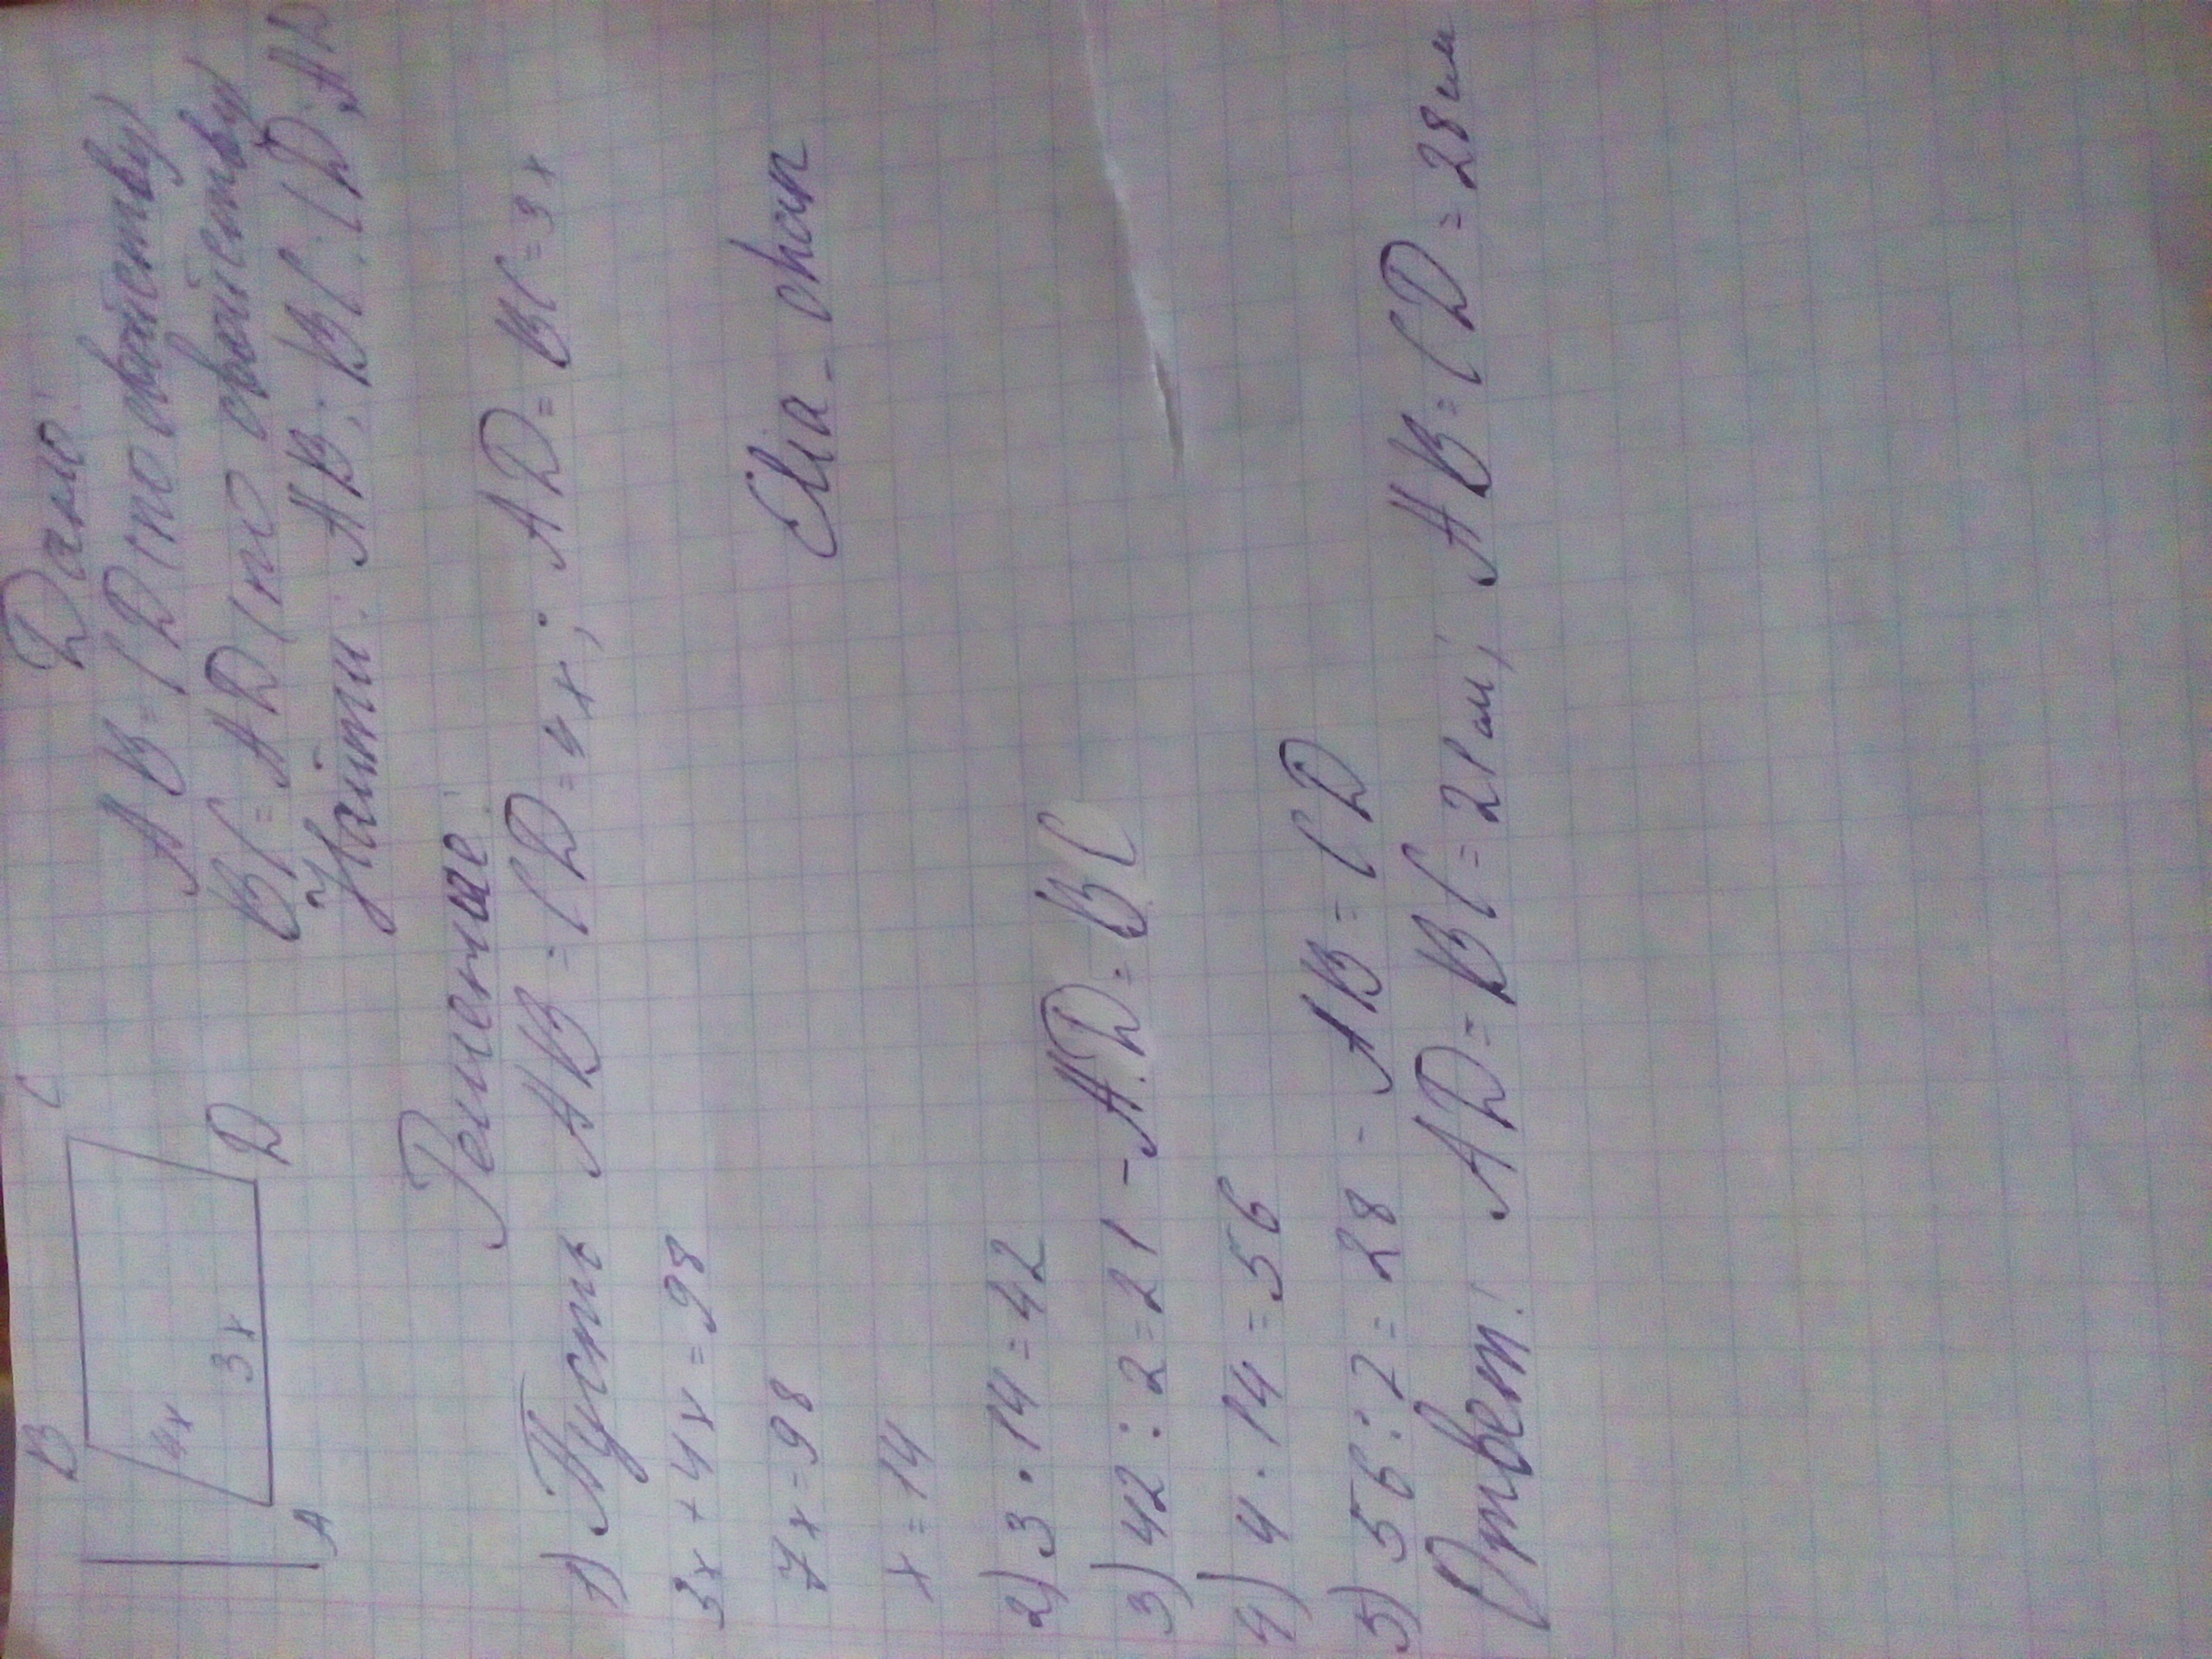 B C
4x
3x
A D
Дано:
AB = CD (по свойству)
BC = AD (по свойству)
Найти: AB; BC; CD; AD
Решение:
1) Пусть AB = CD = 4x; AD = BC = 3x
3x + 4x = 98
7x = 98
x = 14
Elia-ohan
2) 3 · 14 = 42
3) 42 : 2 = 21 - AD = BC
4) 4 · 14 = 56
5) 56 : 2 = 28 - AB = CD
Ответ: AD = BC = 21 см; AB = CD = 28 см